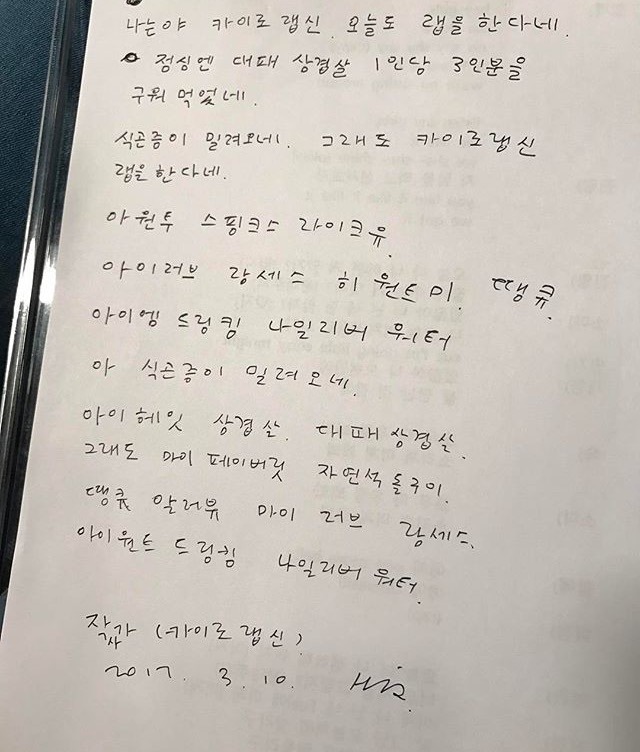 나는야 카이로 랩신. 오늘도 랩을 한다네.
점심엔 대패 삼겹살 1인당 3인분을
구워 먹었네.
식곤증이 밀려오네. 그래도 카이로랩신
랩을 한다네.
아 원투 스핑크스 라이크유.
아이러브 람세스 히 원트미. 땡큐.
아이엠 드링킹 나일리버 워터
아 식곤증이 밀려오네.
아이헤잇 삼겹살. 대패삼겹살.
그래도 마이 페이버릿 자연석 돌구이.
땡큐 알러뷰 마이 러브 람세스.
아이원트 드링킹 나일리버 워터.
작사가 (카이로 랩신)
2017. 3. 10.